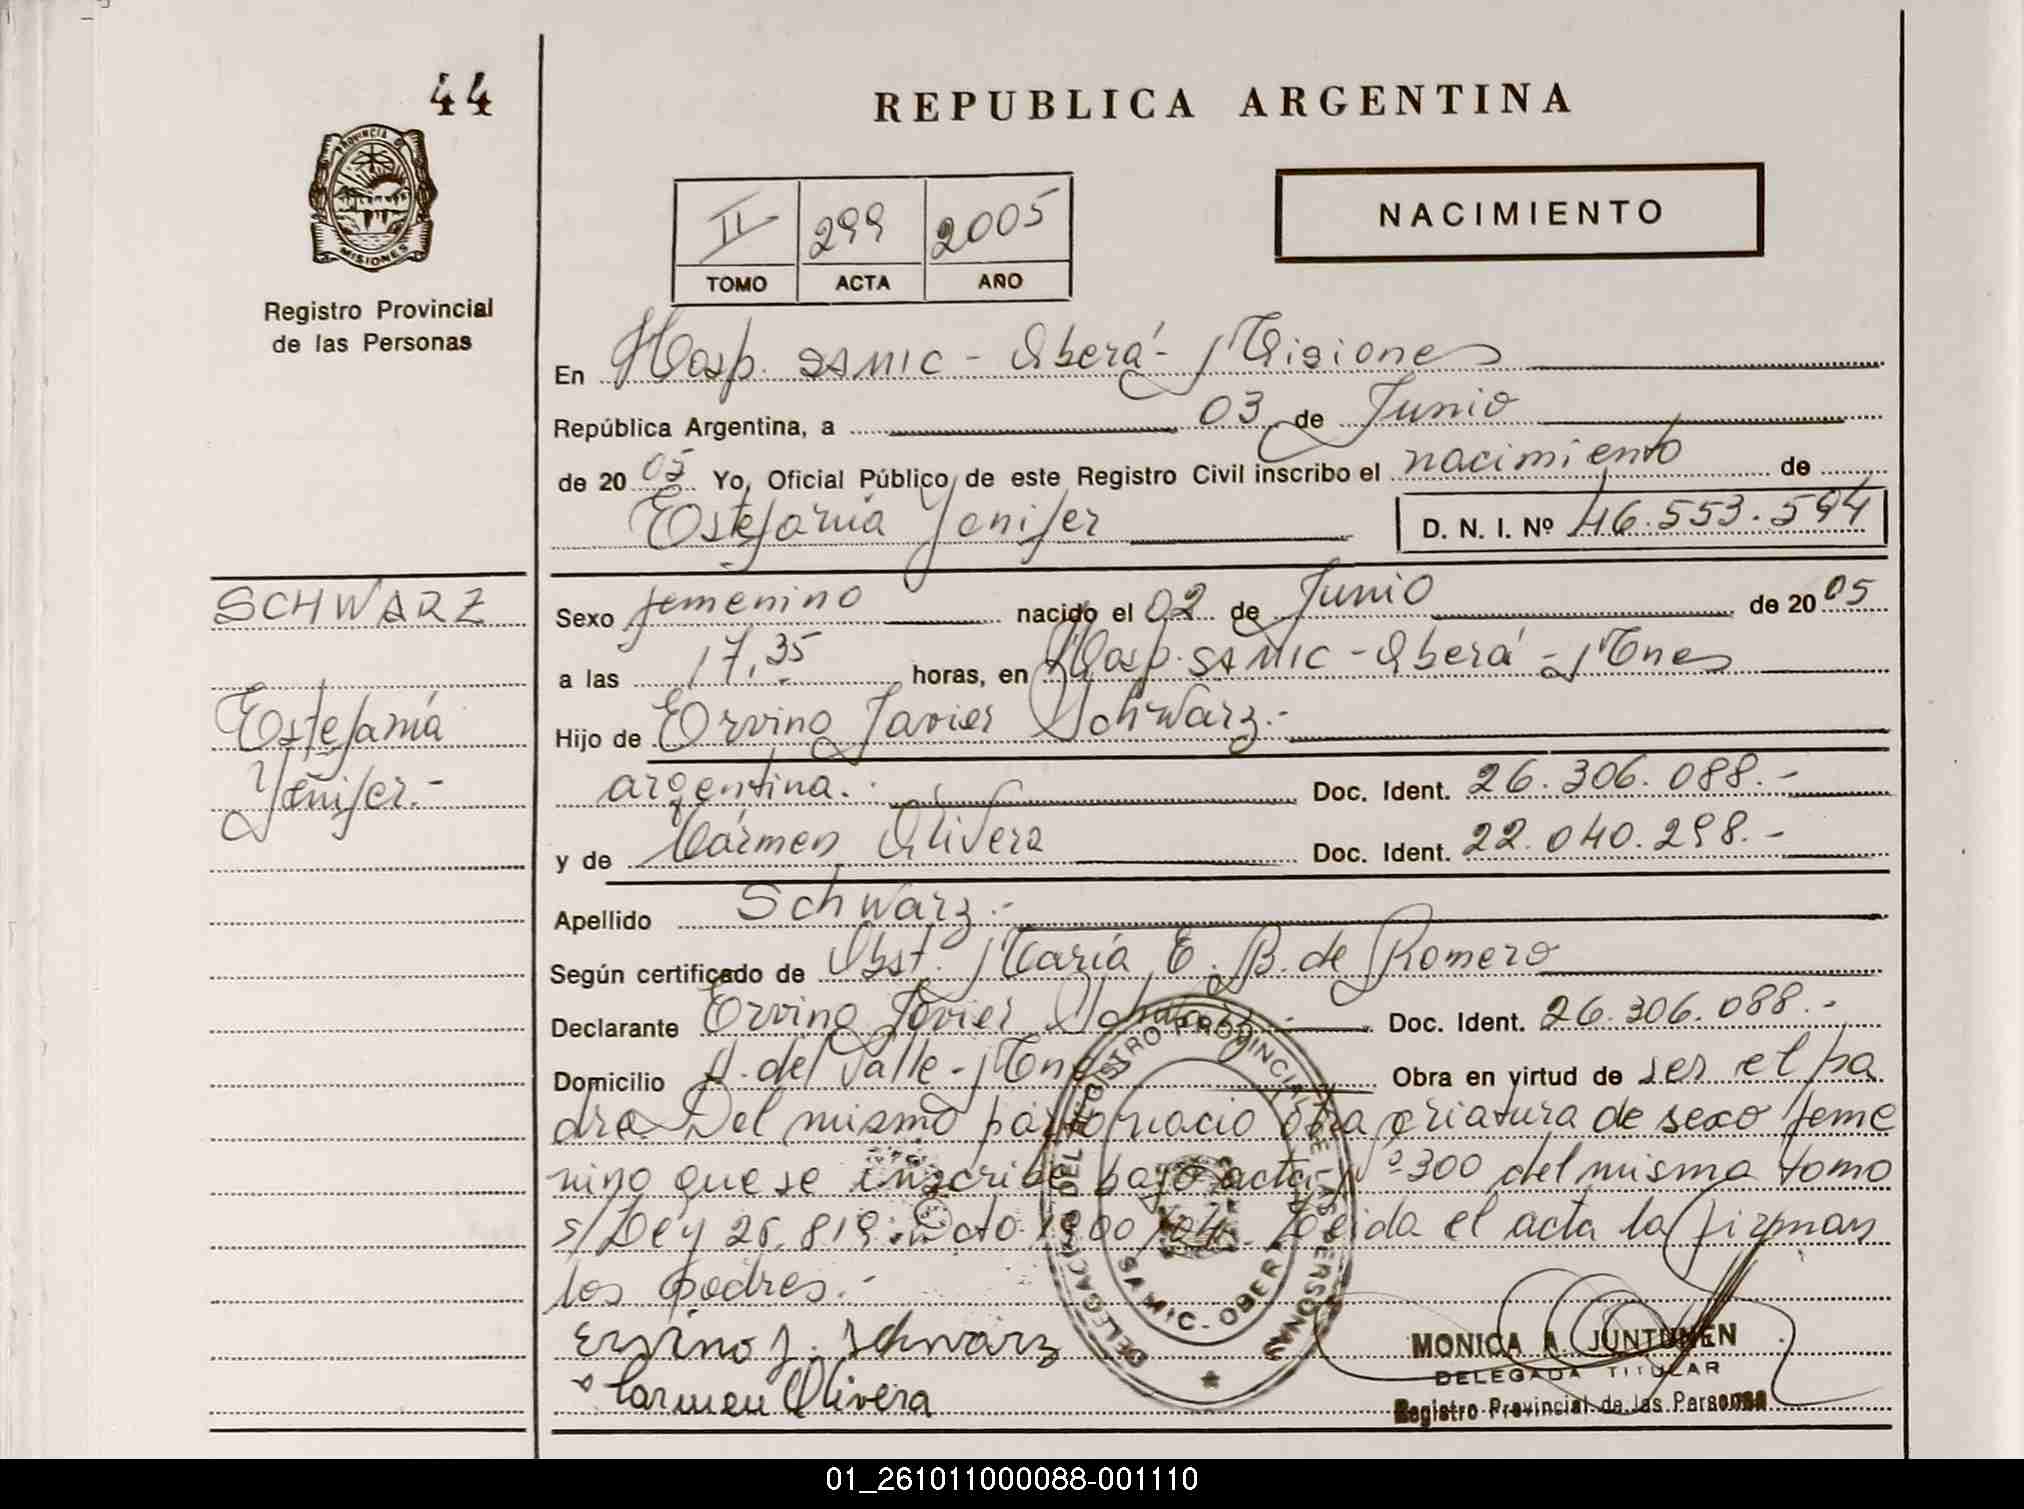 44
REPUBLICA ARGENTINA
PROVINCIA DE
MISIONES
Registro Provincial
de las Personas
II 299 2005
TOMO ACTA AÑO
NACIMIENTO
En Hosp. SAMIC - Oberá - Misiones
República Argentina, a 03 de Junio
de 20 05 Yo, Oficial Público de este Registro Civil inscribo el nacimiento de
Estefanía Yenifer D. N. I. Nº 46.553.594
SCHWARZ
Estefanía
Yenifer.-
Sexo femenino nacido el 02 de Junio de 20 05
a las 17,35 horas, en Hosp. SAMIC - Oberá - Mnes
Hijo de Ervino Javier Schwarz.-
argentina. Doc. Ident. 26.306.088.-
y de Cármen Olivera Doc. Ident. 22.040.298.-
Apellido Schwarz.-
Según certificado de Obst. María E. B. de Romero
Declarante Ervino Javier Schwarz.- Doc. Ident. 26.306.088.-
Domicilio A. del Valle - Mnes Obra en virtud de ser el pa
dre. Del mismo parto nació otra criatura de sexo feme
nino que se inscribe bajo acta Nº 300 del mismo tomo
s/Ley 25.819 - Dcto. 1900/04. Leida el acta la firman
los padres.-
Ervino J. Schwarz
Carmen Olivera
DELEGACION DEL REGISTRO PROVINCIAL DE LAS PERSONAS
SAMIC - OBERA
MONICA A. JUNTUNEN
DELEGADA TITULAR
Registro Provincial de las Personas
01_261011000088-001110